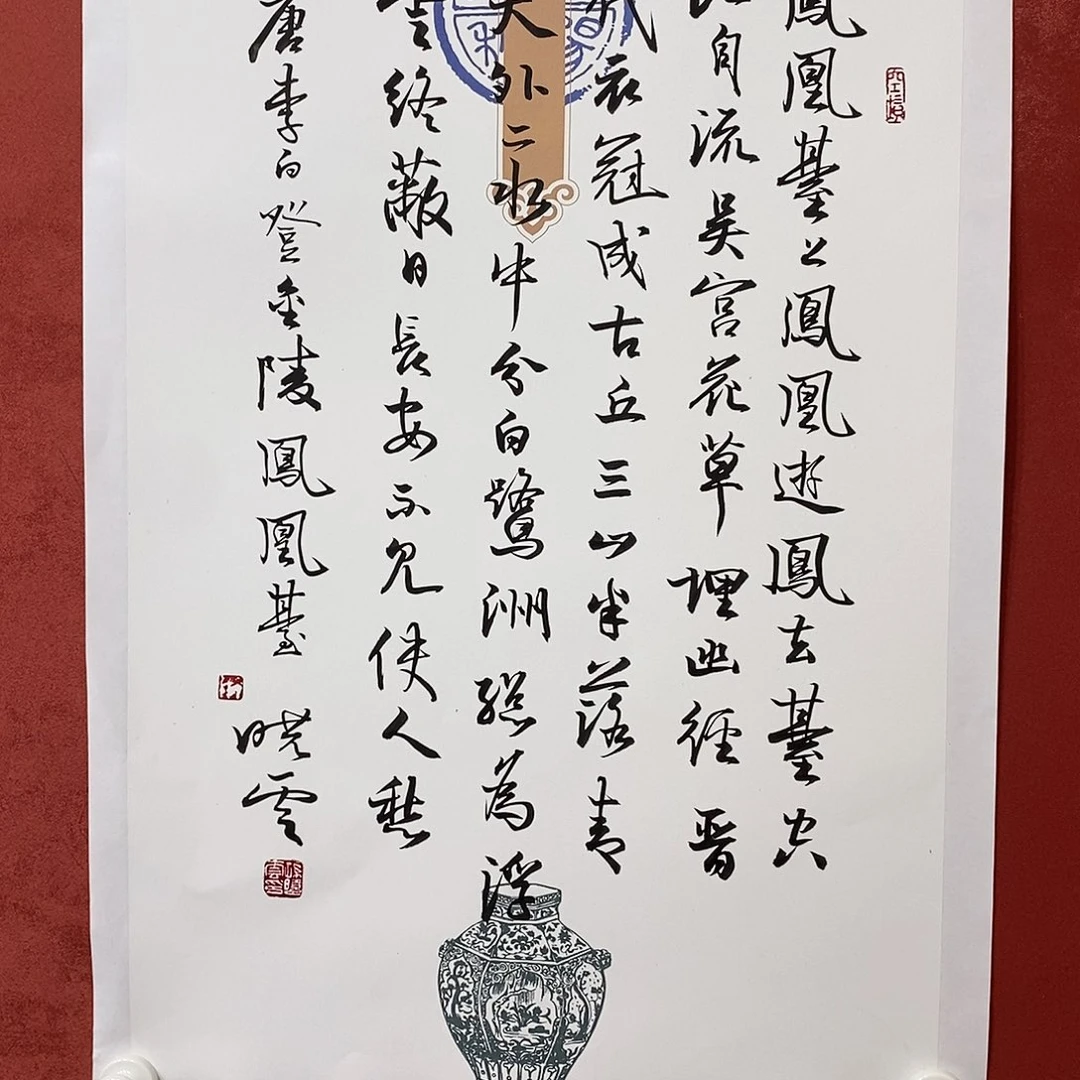 鳳凰臺上鳳凰遊鳳去臺空
江自流吳宮花草埋幽徑晉
代衣冠成古丘三山半落青
天外二水中分白鷺洲總為浮
雲終蔽日長安不見使人愁
唐李白登金陵鳳凰臺
晓雲